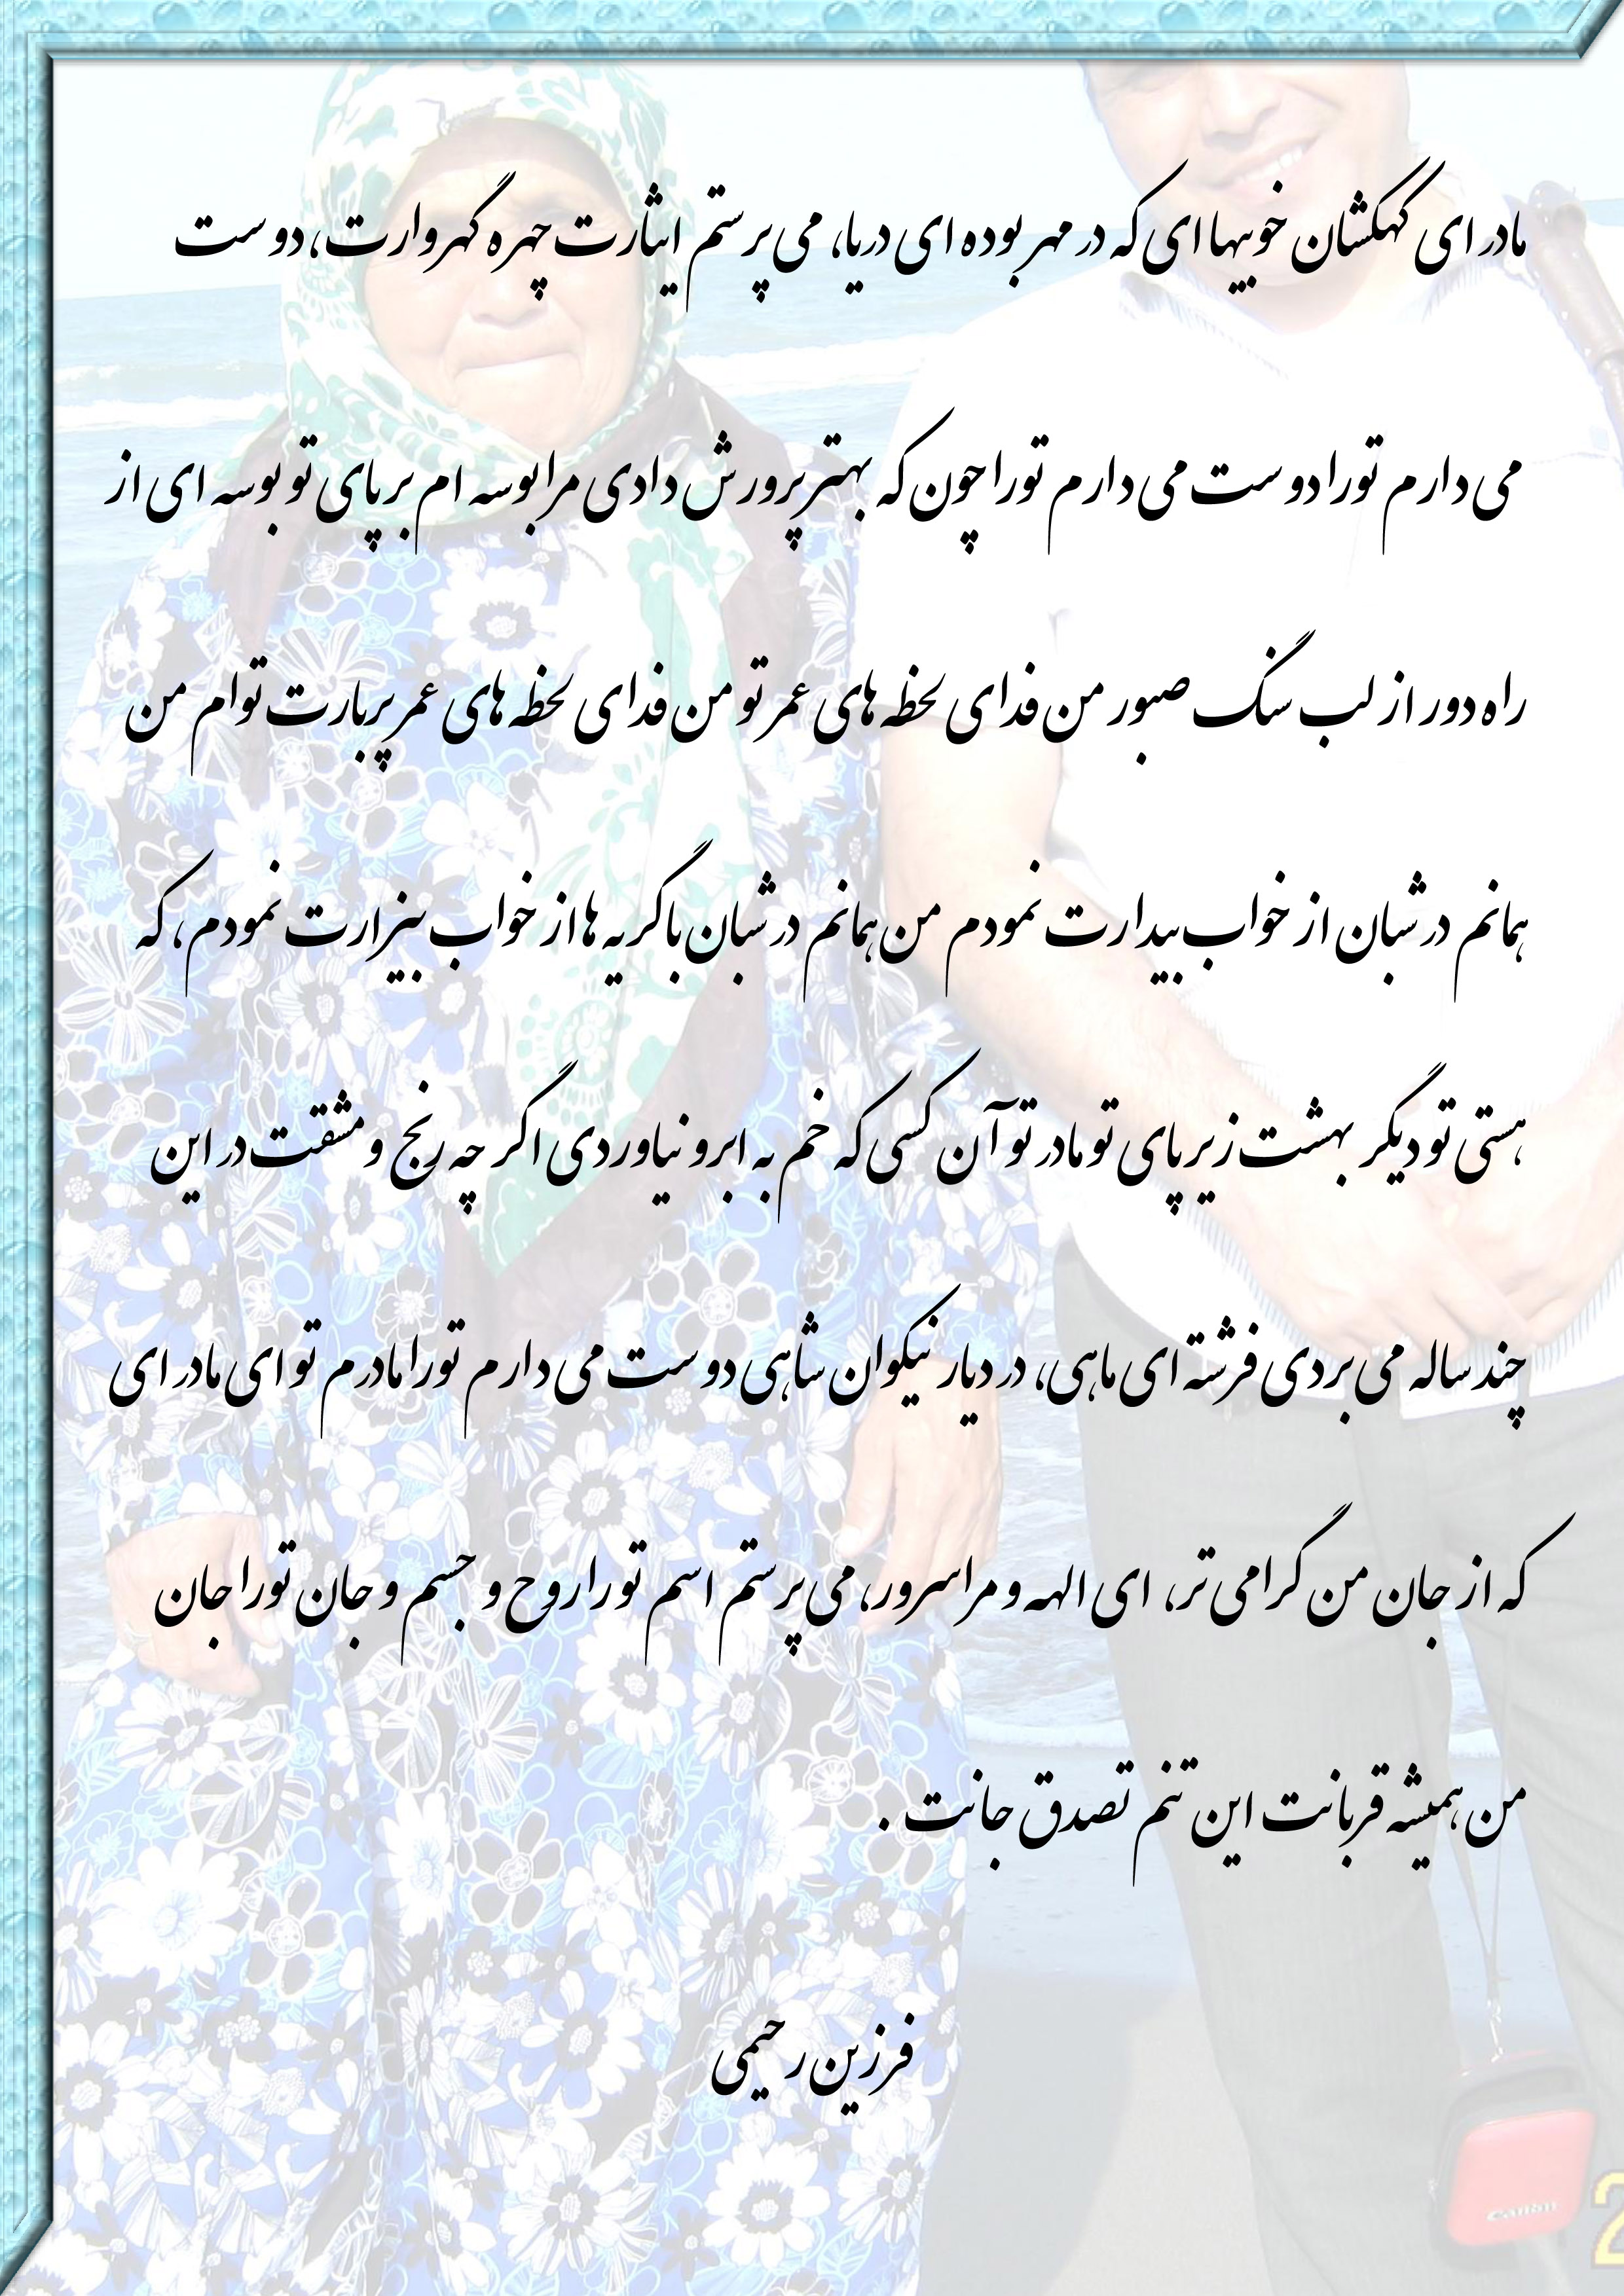 مادر ای کهکشان خوبیها ای که در مهر بوده ای دریا، می پرستم ایثارت چهره گهروارت، دوست
می دارم تورا دوست می دارم تورا چون که بهتر پرورش دادی مرا بوسه ام بر پای تو بوسه ای از
راه دور از لب سنگ صبور من فدای لحظه های عمر تو من فدای لحظه های عمر پربارت توام من
همانم در شبان از خواب بیدارت نمودم من همانم در شبان با گریه ها از خواب بیزارت نمودم، که
هستی تو دیگر بهشت زیر پای تو مادر تو آن کسی که خم به ابرو نیاوردی اگر چه رنج و مشقت در این
چند ساله می بردی فرشته ای ماهی، در دیار نیکوان شاهی دوست می دارم تورا مادرم تو ای مادر ای
که از جان من گرامی تر، ای الهه و مرا سرور، می پرستم اسم تورا روح و جسم و جان تورا جان
من همیشه قربانت این تنم تصدق جانت .
فرزین رحیمی
Canon
2